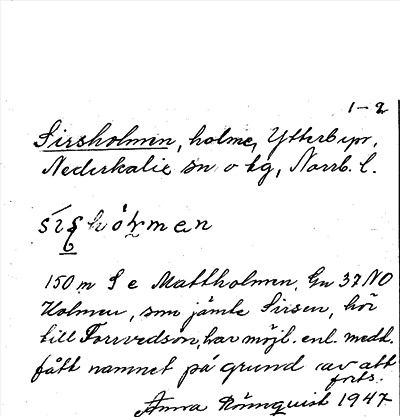 1–2
Sirsholmen, holme, Ytterbyn,
Nederkalix sn o tg, Norrb. l.
150 m S e Mattholmen. Gn 37 NO
Holmen, som jämte Sirsen, hör
till Forrvedsön, har möjl. enl. medd.
fått namnet på grund av att
forts.
Anna Rönnquist 1947